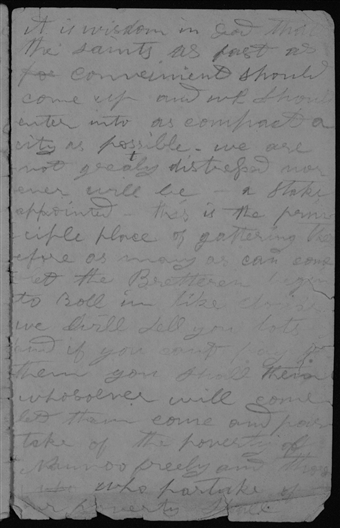 it is wisdom in God that
the saints as fast as
for conveinient should
come up and we should
enter into as compact a
city as possible - we are
not greatly distressed nor
ever will be - a Stake
appointed - this is the prin
ciple place of gathering the
efore as many as can come
let the Brotteren begin
to Roll in like clouds
we will sell you lots
and if you cant pay for
them you shall
whosoever will come
let them come and par
take of the poverty of
Nauvoo freely and those
who partake of
her poverty